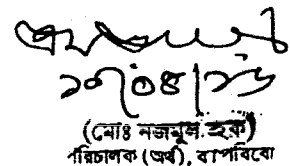 ১৭/০৪/১৬
(মোঃ নজমুল হক)
পরিচালক (অর্থ), বাপবিবো